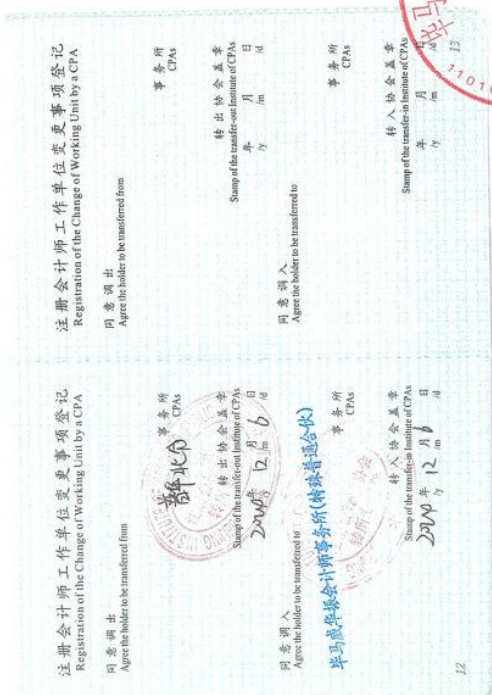 注册会计师工作单位变更事项登记
Registration of the Change of Working Unit by a CPA
同意调出
Agree the holder to be transferred from
事务所
CPAs
转出协会盖章
Stamp of the transfer-out Institute of CPAs
12月6日
/y /m /d
同意调入
Agree the holder to be transferred to
毕马威华振会计师事务所(特殊普通合伙)
事务所
CPAs
转入协会盖章
Stamp of the transfer-in Institute of CPAs
年12月6日
/y /m /d
12
注册会计师工作单位变更事项登记
Registration of the Change of Working Unit by a CPA
同意调出
Agree the holder to be transferred from
事务所
CPAs
转出协会盖章
Stamp of the transfer-out Institute of CPAs
年 月 日
/y /m /d
同意调入
Agree the holder to be transferred to
事务所
CPAs
转入协会盖章
Stamp of the transfer-in Institute of CPAs
年 月 日
/y /m /d
13
毕马